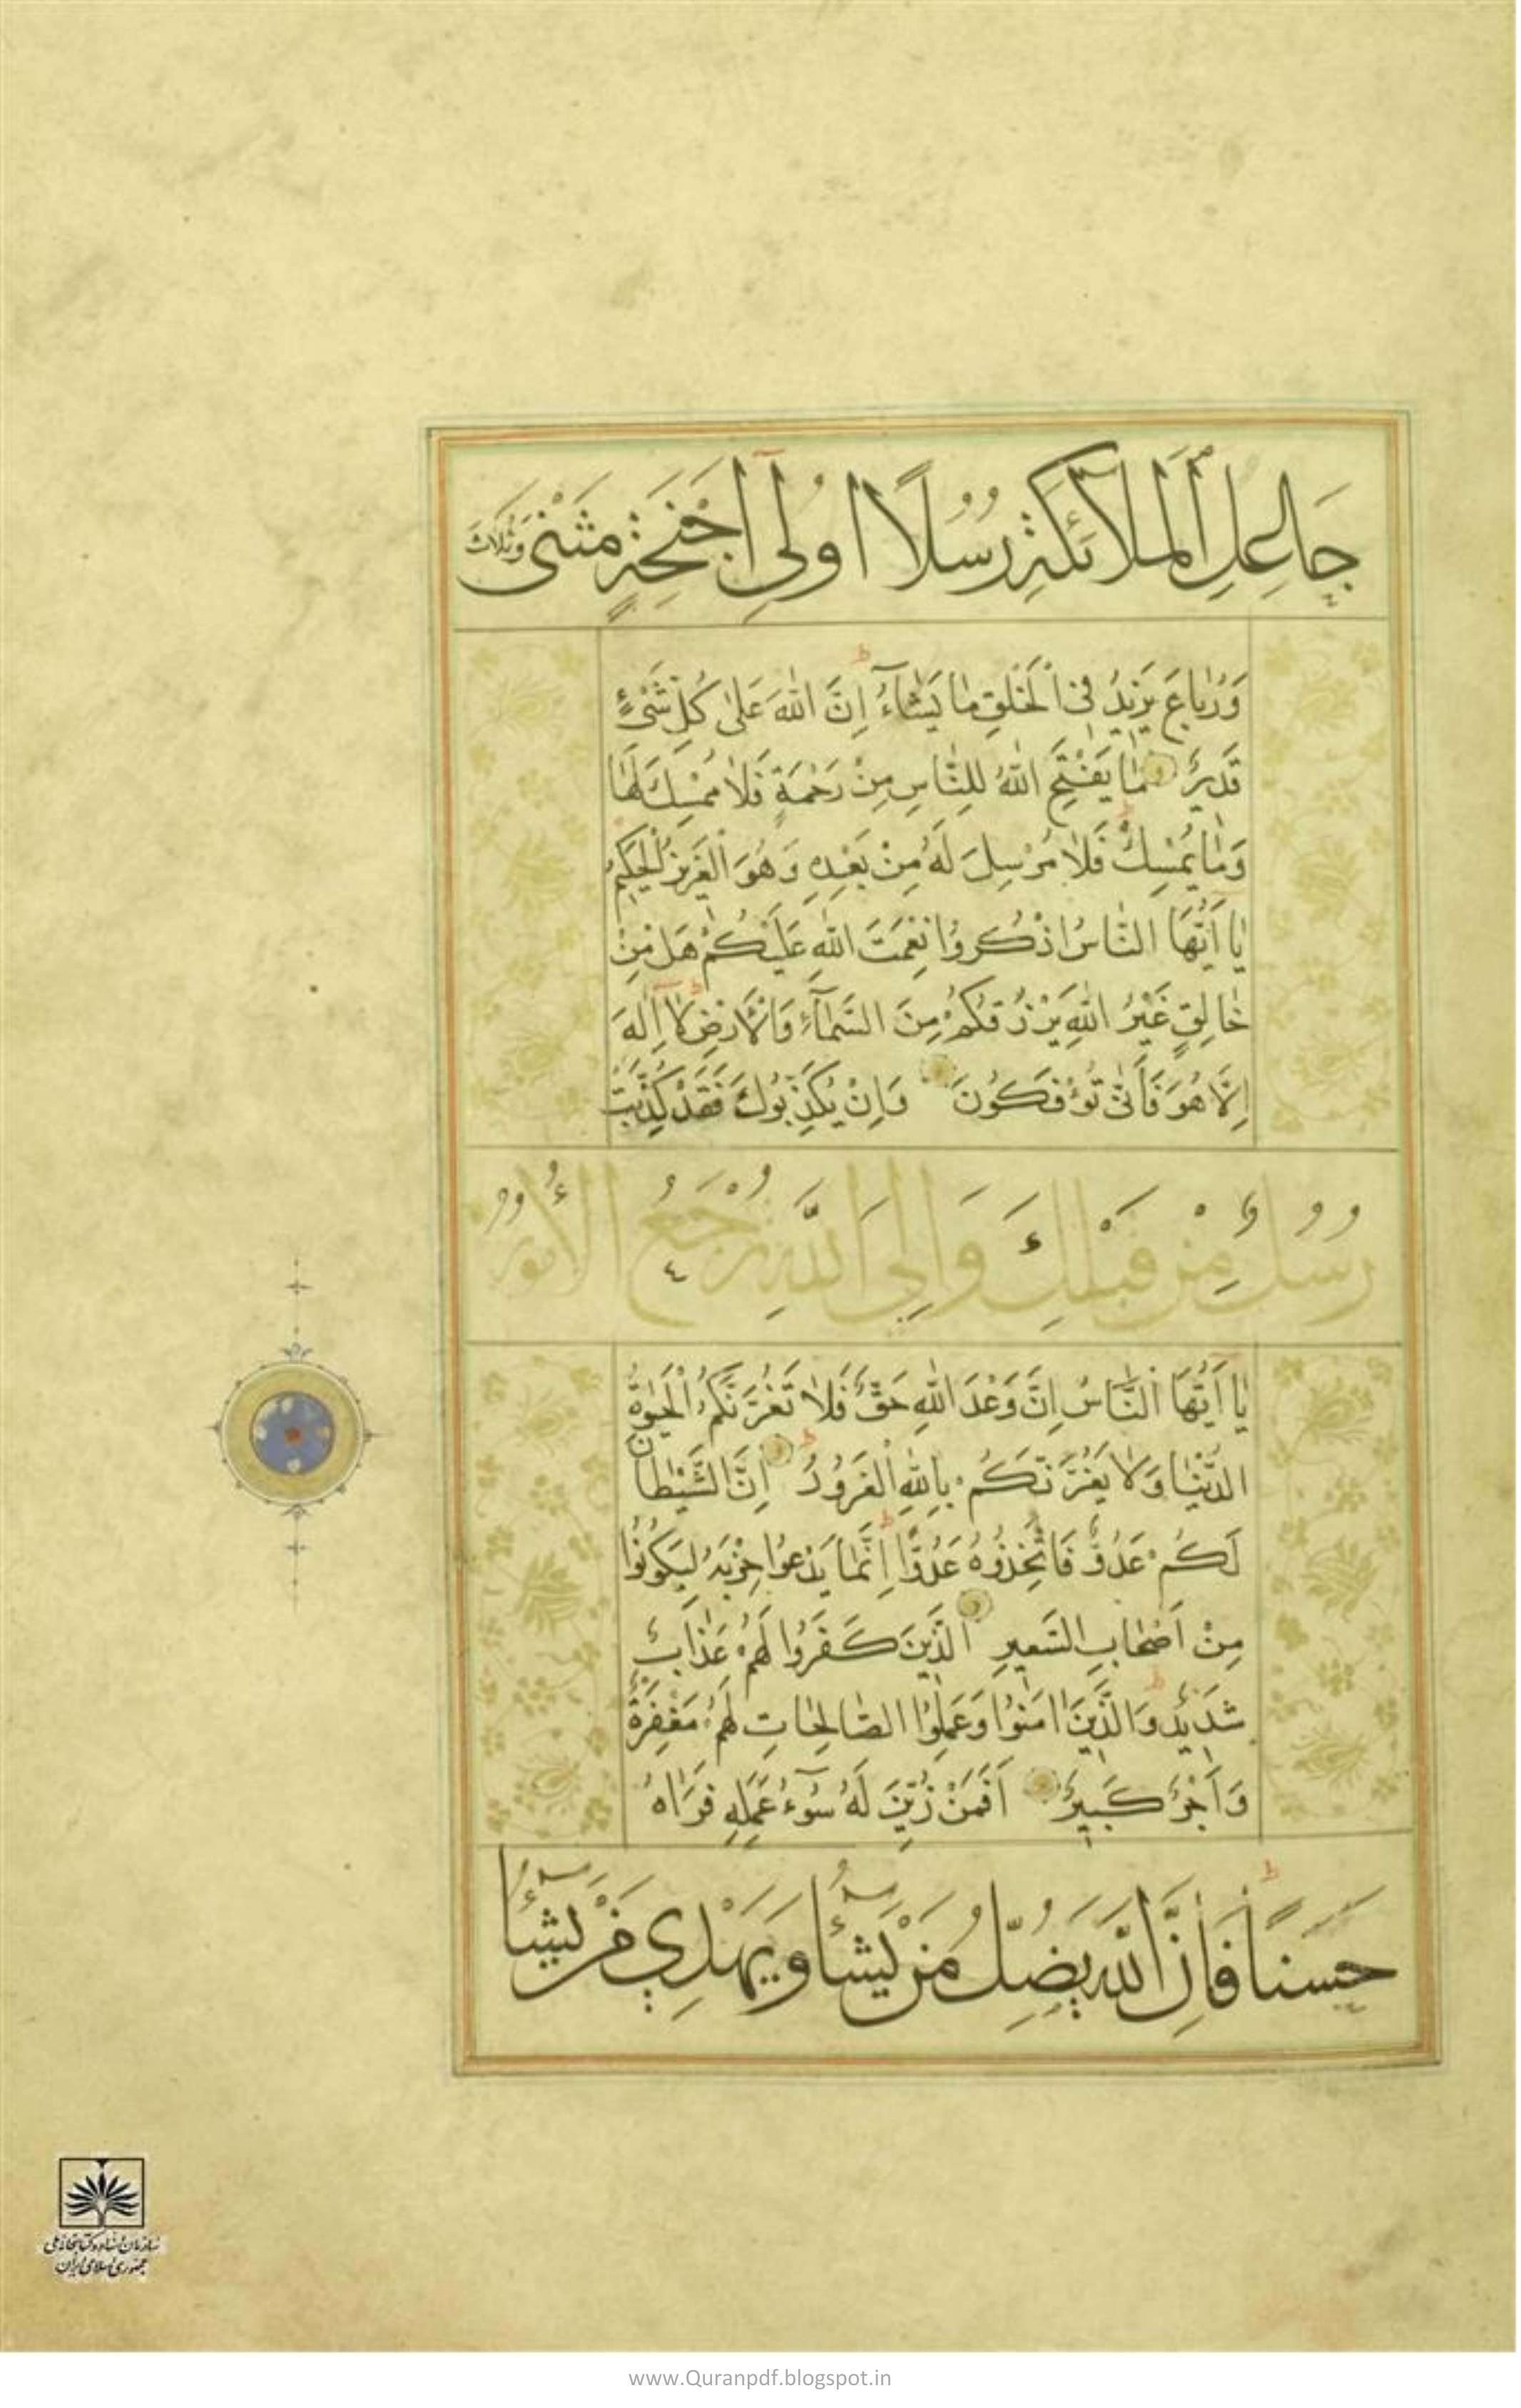 جَاعِلِ الْمَلَائِكَةِ رُسُلًا اُولِي اَجْنِحَةٍ مَثْنٰى وَثُلَاثَ
وَرُبَاعَ يَزِيدُ فِي الْخَلْقِ مَا يَشَآءُ اِنَّ اللّٰهَ عَلٰى كُلِّ شَيْءٍ
قَدِيرٌ مَا يَفْتَحِ اللّٰهُ لِلنَّاسِ مِنْ رَحْمَةٍ فَلَا مُمْسِكَ لَهَا
وَمَا يُمْسِكْ فَلَا مُرْسِلَ لَهُ مِنْ بَعْدِهِ وَهُوَ الْعَزِيزُ الْحَكِيمُ
يَا اَيُّهَا النَّاسُ اذْكُرُوا نِعْمَتَ اللّٰهِ عَلَيْكُمْ هَلْ مِنْ
خَالِقٍ غَيْرُ اللّٰهِ يَرْزُقُكُمْ مِنَ السَّمَآءِ وَالْاَرْضِ لَا اِلٰهَ
اِلَّا هُوَ فَاَنّٰى تُؤْفَكُونَ وَاِنْ يُكَذِّبُوكَ فَقَدْ كُذِّبَتْ
رُسُلٌ مِنْ قَبْلِكَ وَاِلَى اللّٰهِ تُرْجَعُ الْاُمُورُ
يَا اَيُّهَا النَّاسُ اِنَّ وَعْدَ اللّٰهِ حَقٌّ فَلَا تَغُرَّنَّكُمُ الْحَيٰوةُ
الدُّنْيَا وَلَا يَغُرَّنَّكُمْ بِاللّٰهِ الْغَرُورُ اِنَّ الشَّيْطَانَ
لَكُمْ عَدُوٌّ فَاتَّخِذُوهُ عَدُوًّا اِنَّمَا يَدْعُوا حِزْبَهُ لِيَكُونُوا
مِنْ اَصْحَابِ السَّعِيرِ الَّذِينَ كَفَرُوا لَهُمْ عَذَابٌ
شَدِيدٌ وَالَّذِينَ اٰمَنُوا وَعَمِلُوا الصَّالِحَاتِ لَهُمْ مَغْفِرَةٌ
وَاَجْرٌ كَبِيرٌ اَفَمَنْ زُيِّنَ لَهُ سُوٓءُ عَمَلِهِ فَرَاٰهُ
حَسَنًا فَاِنَّ اللّٰهَ يُضِلُّ مَنْ يَشَآءُ وَيَهْدِي مَنْ يَشَآءُ
سازمان اسناد و کتابخانه ملی
جمهوری اسلامی ایران
www.Quranpdf.blogspot.in